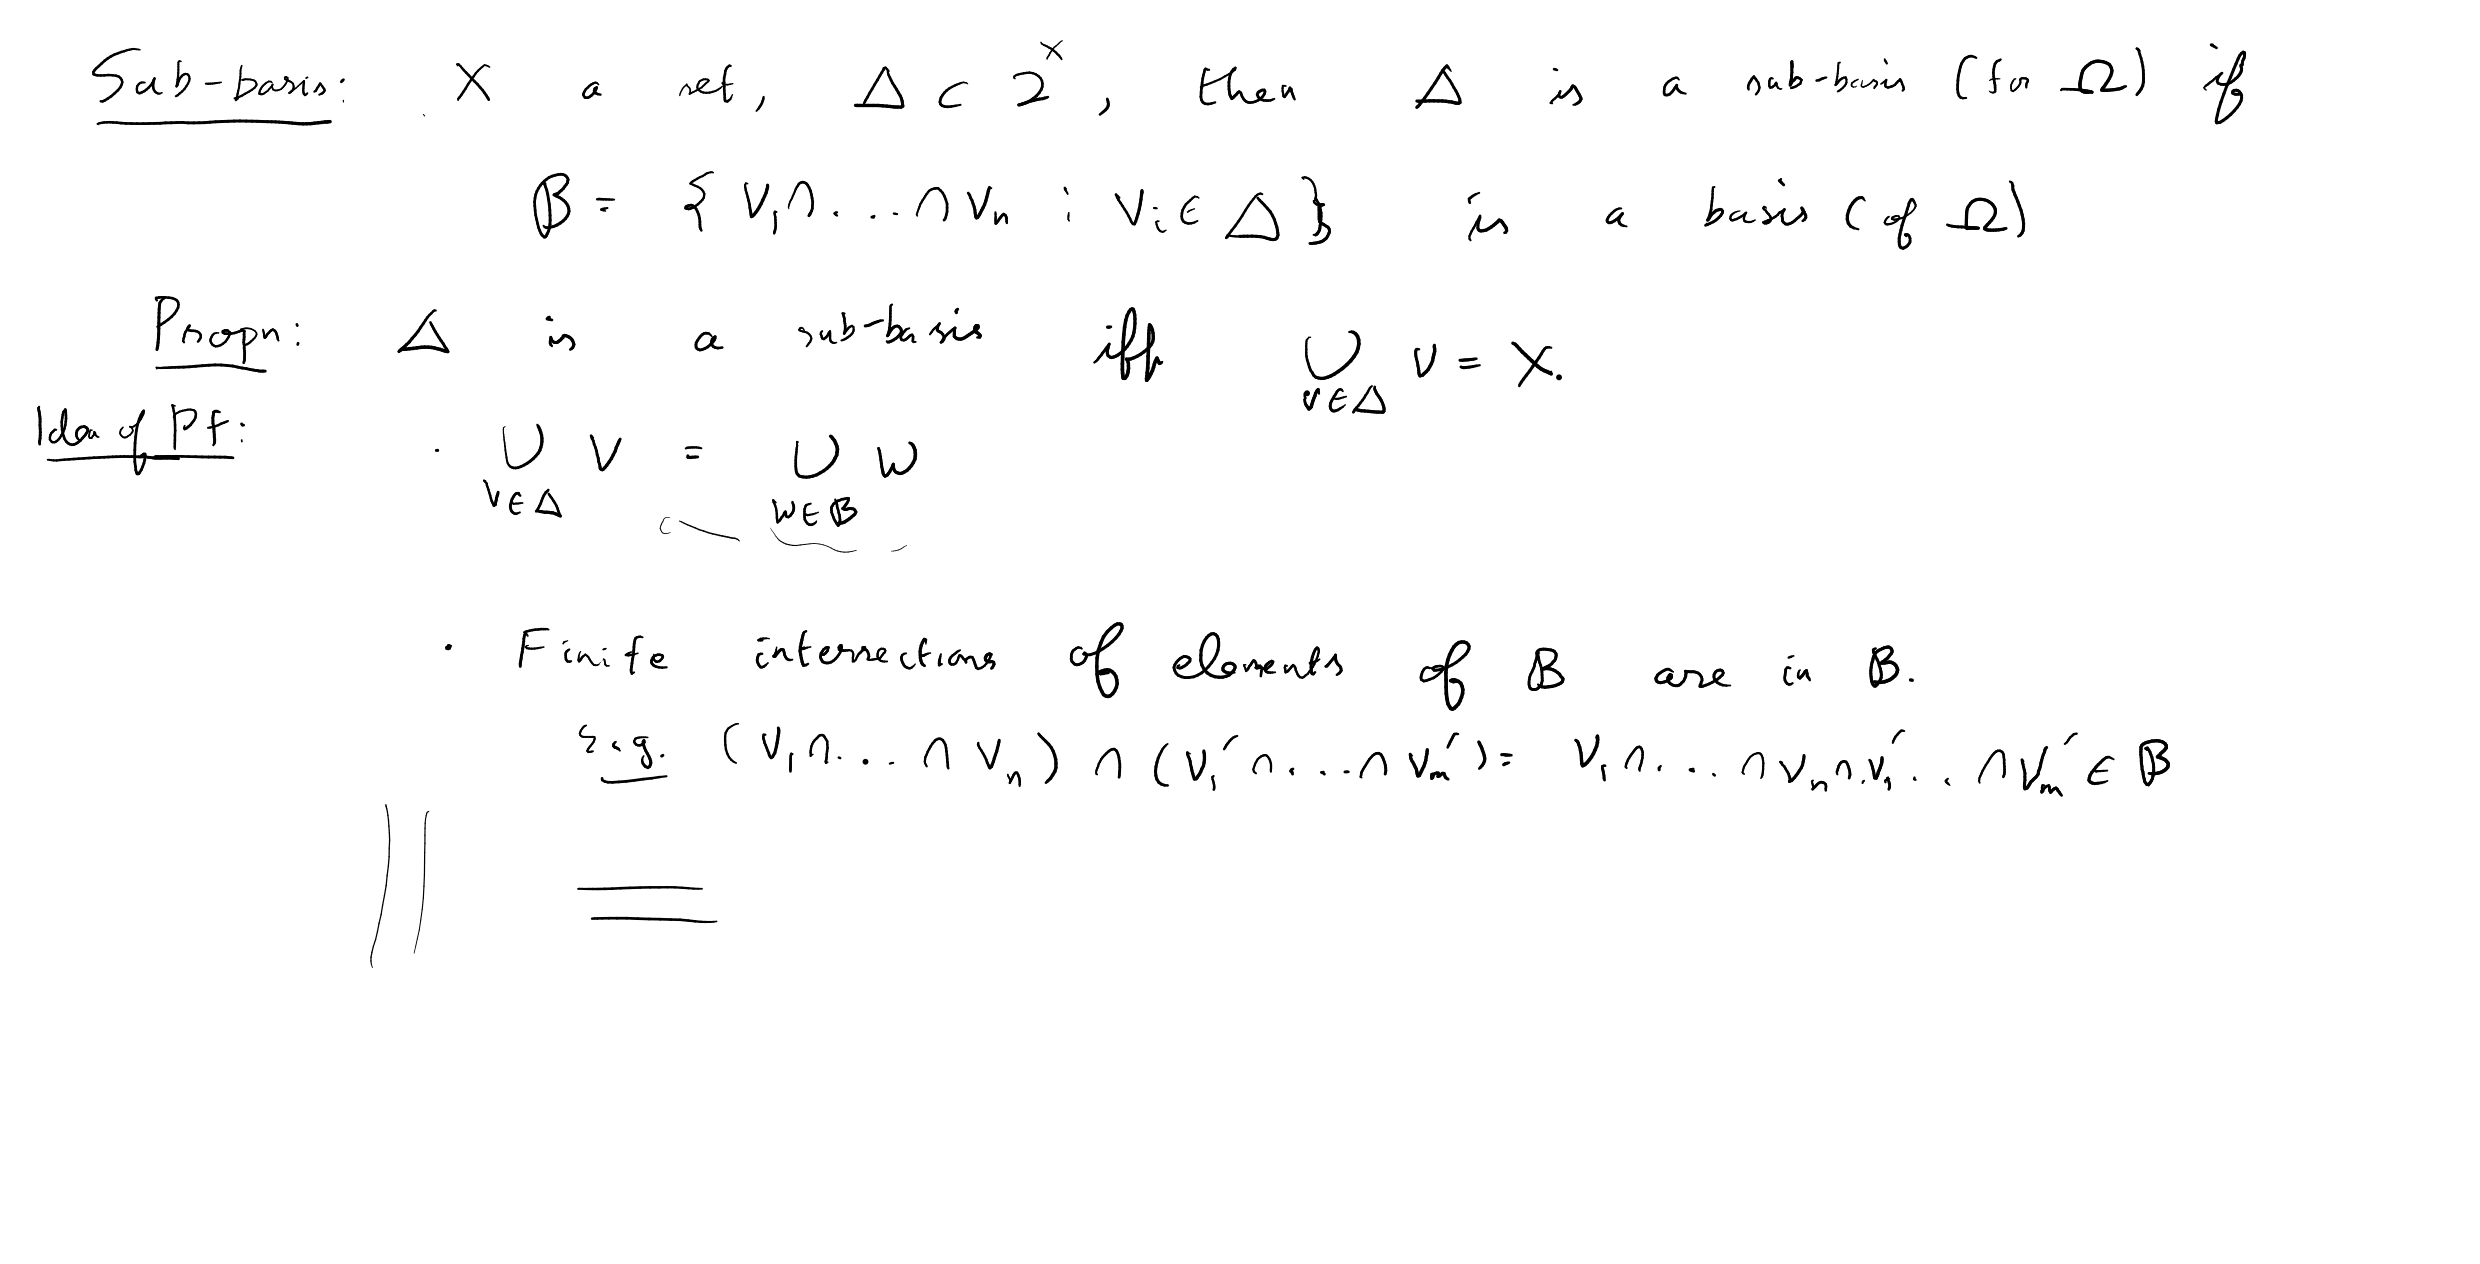 Sub-basis: X a set, Δ ⊂ 2^X, then Δ is a sub-basis (for Ω) if
𝔹 = { V₁∩...∩Vₙ : Vᵢ ∈ Δ } is a basis (of Ω)
Propn: Δ is a sub-basis iff ∪_{V∈Δ} V = X.
Idea of Pf: · ∪_{V∈Δ} V = ∪_{W∈𝔹} W
· Finite intersections of elements of 𝔹 are in 𝔹.
E.g. (V₁∩...∩Vₙ) ∩ (V₁′∩...∩Vₘ′) = V₁∩...∩Vₙ∩V₁′...∩Vₘ′ ∈ 𝔹